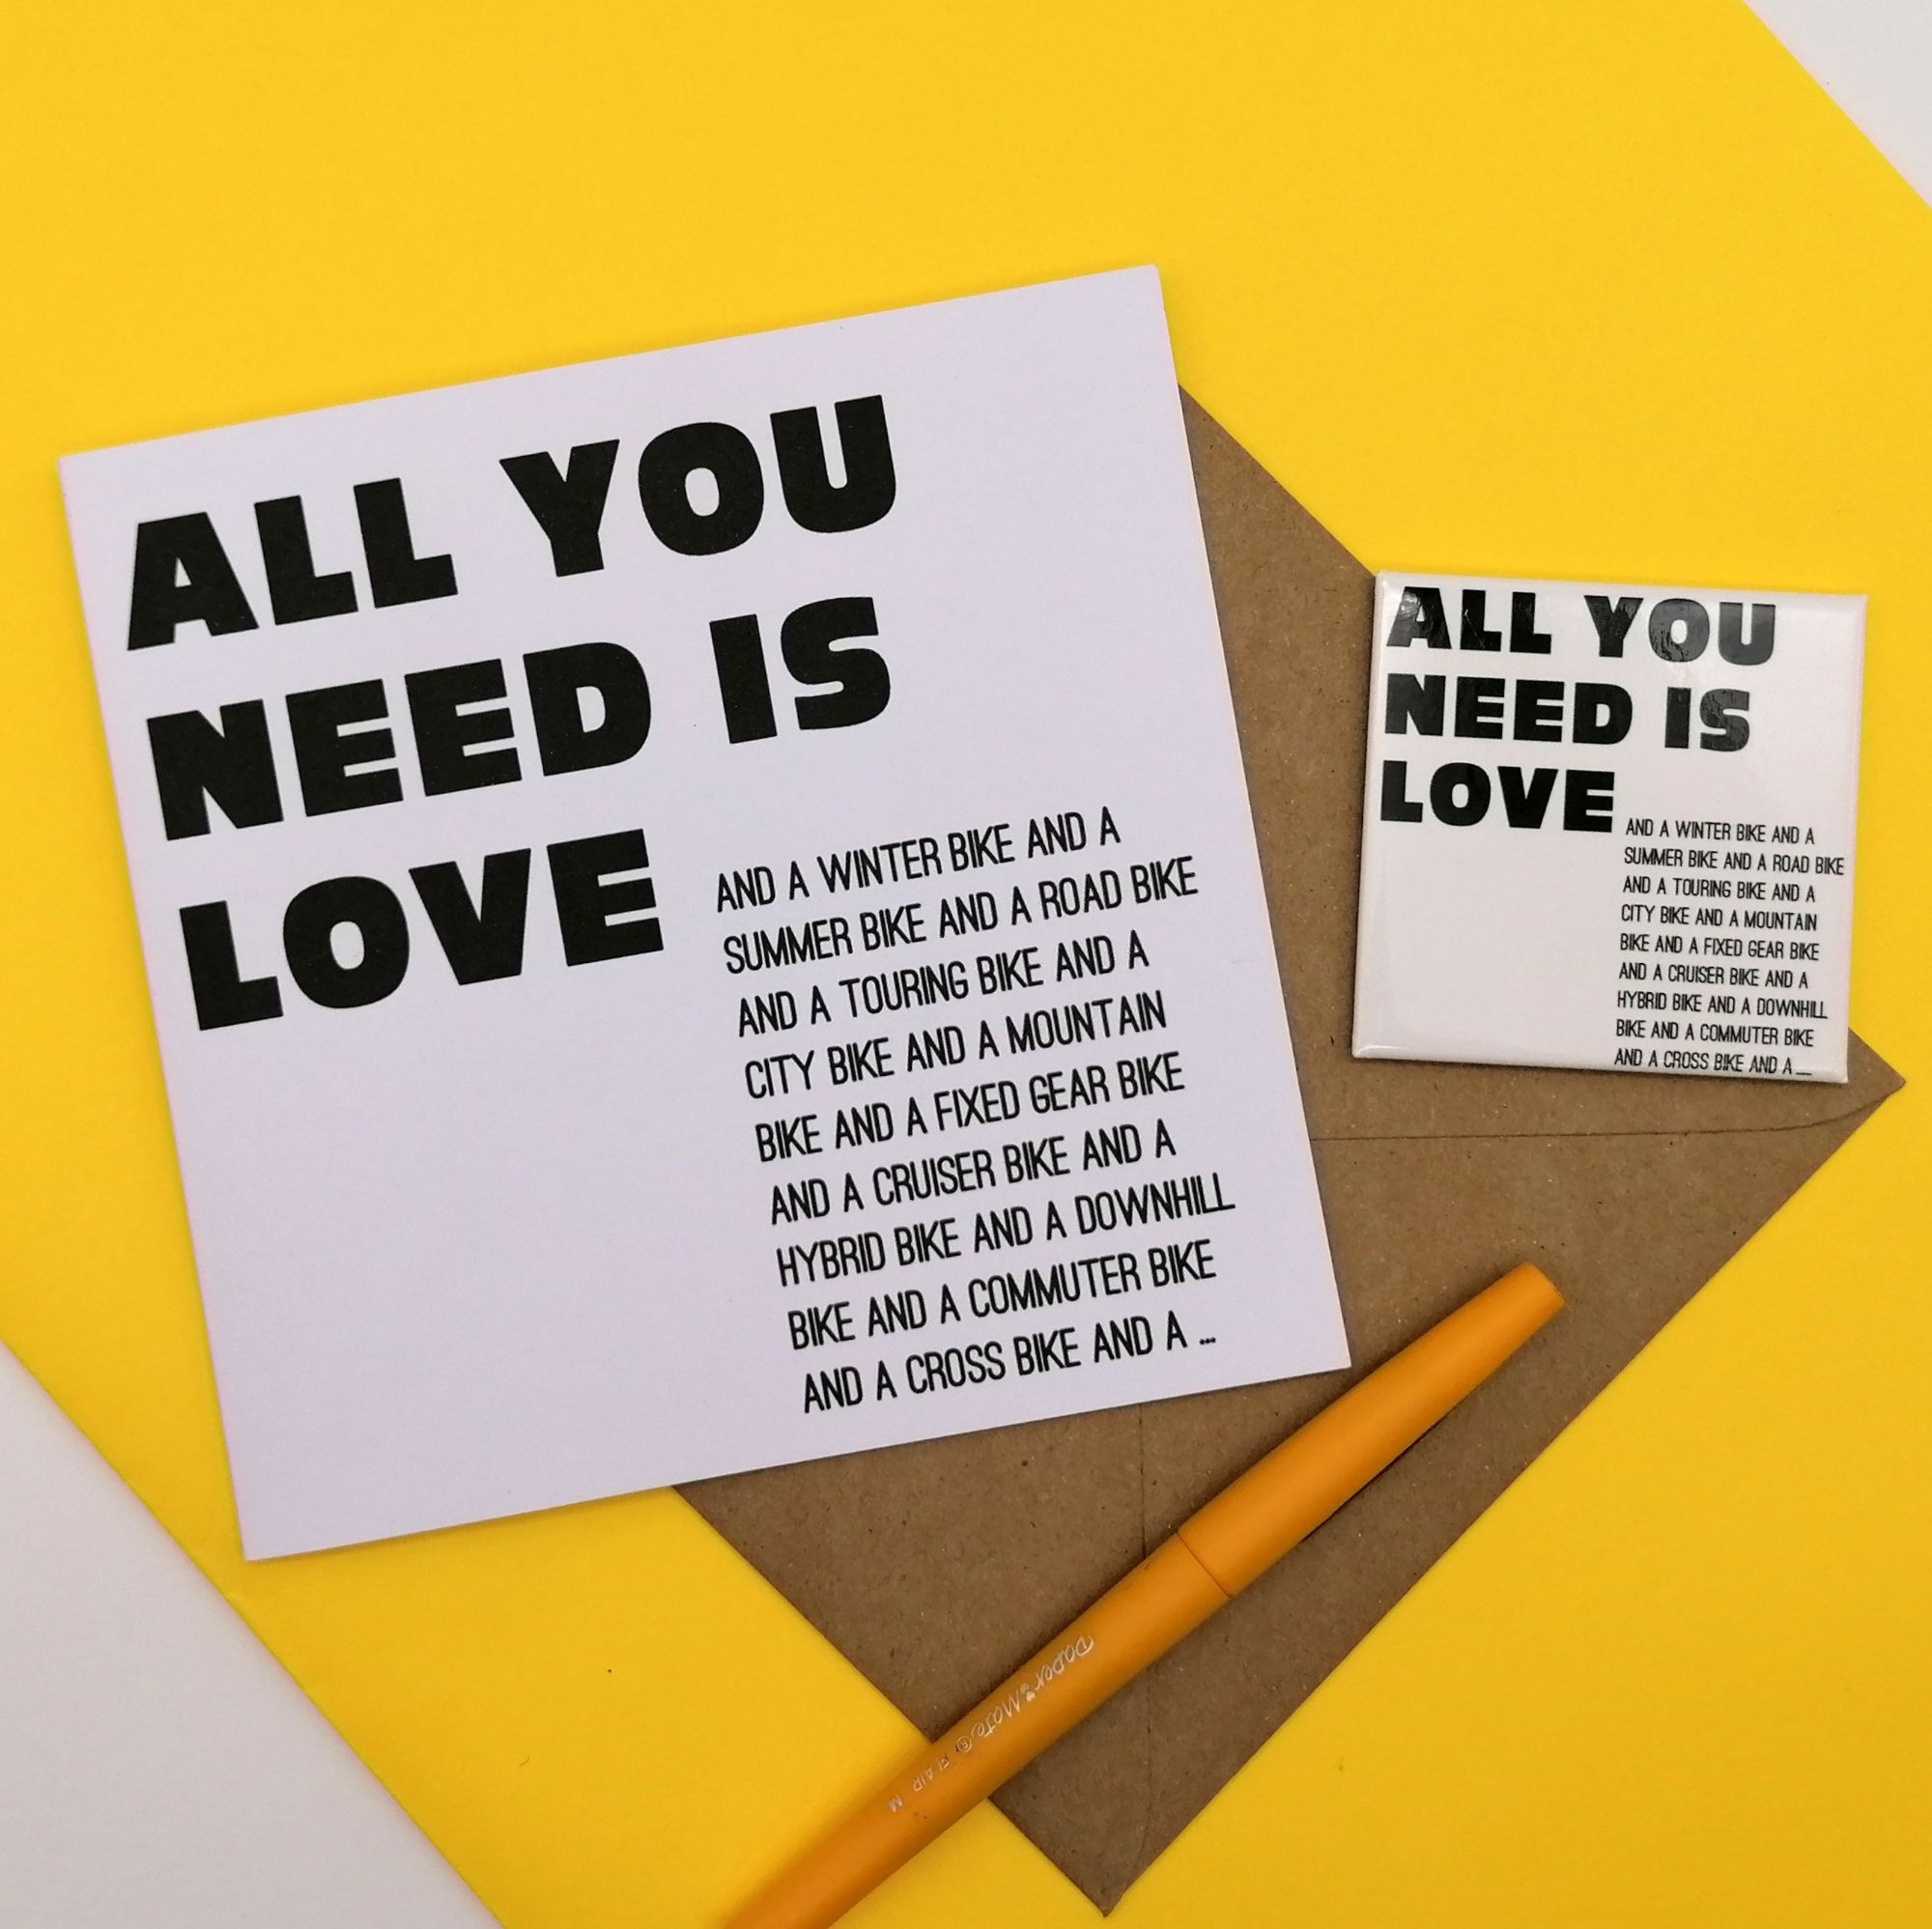 ALL YOU
NEED IS
LOVE
AND A WINTER BIKE AND A
SUMMER BIKE AND A ROAD BIKE
AND A TOURING BIKE AND A
CITY BIKE AND A MOUNTAIN
BIKE AND A FIXED GEAR BIKE
AND A CRUISER BIKE AND A
HYBRID BIKE AND A DOWNHILL
BIKE AND A COMMUTER BIKE
AND A CROSS BIKE AND A ...
ALL YOU
NEED IS
LOVE
AND A WINTER BIKE AND A
SUMMER BIKE AND A ROAD BIKE
AND A TOURING BIKE AND A
CITY BIKE AND A MOUNTAIN
BIKE AND A FIXED GEAR BIKE
AND A CRUISER BIKE AND A
HYBRID BIKE AND A DOWNHILL
BIKE AND A COMMUTER BIKE
AND A CROSS BIKE AND A ...
Paper Mate® FLAIR M